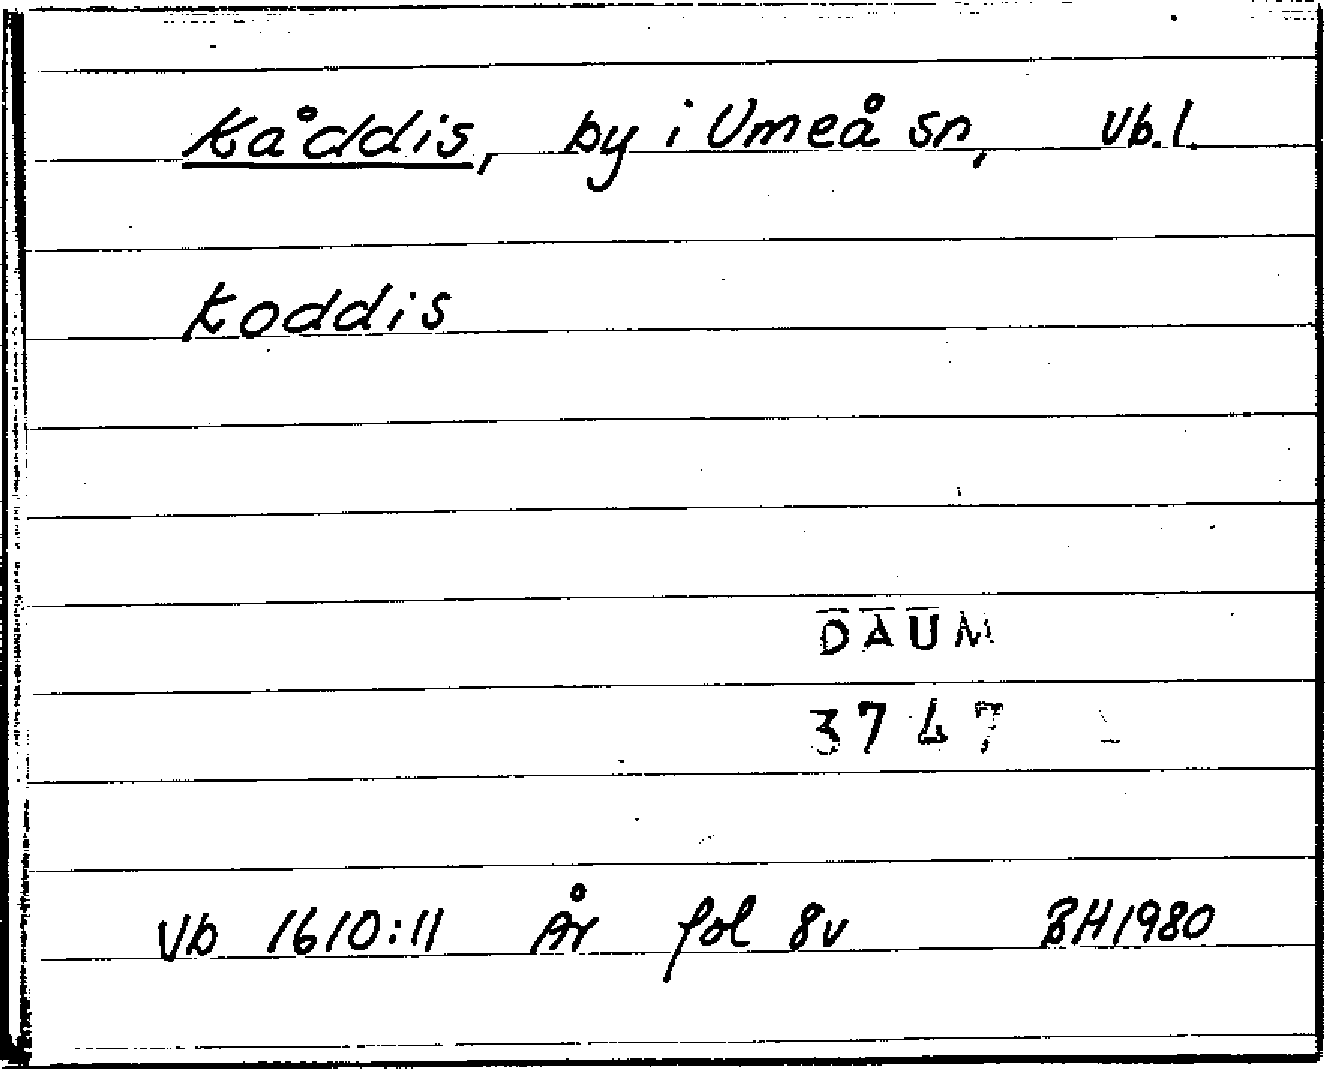 Kåddis, by i Umeå sn, Vb.l.
Koddis
DAUM
3747
Vb 1610:11 År fol 8v BH1980